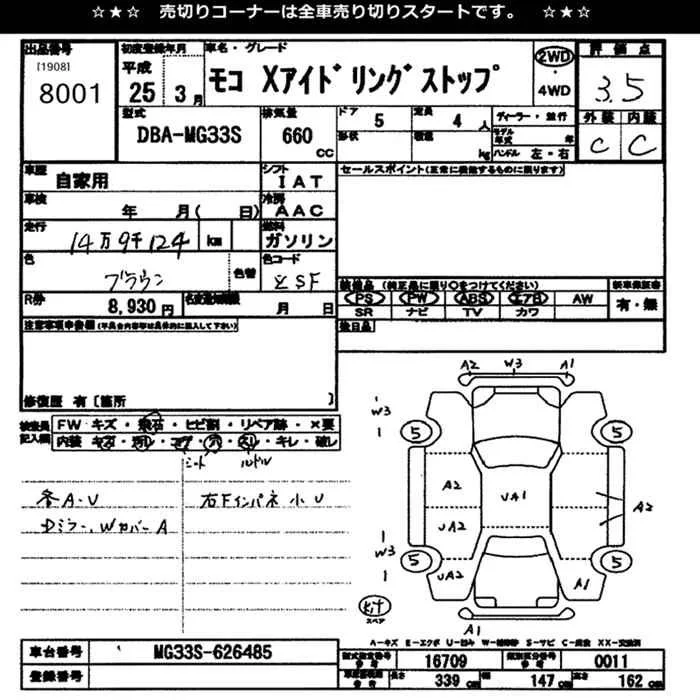 ☆★☆ 売切りコーナーは全車売り切りスタートです。 ☆★☆
出品番号 初度登録年月 車名・グレード 2WD 評価点
[1908] 平成
8001 25 3月 モコ Xアイドリングストップ 4WD 3.5
型式 排気量 ドア 5 定員 4人 ディーラー・並行 外装 内装
DBA-MG33S 660 cc 形状 積載 kg モデル年式 年 C C
ハンドル 左・右
車歴 自家用 シフト IAT セールスポイント(正常に機能するものに限ります)
車検 年 月( 日) 冷房 AAC
走行 14万9千124 km 燃料 ガソリン
色 ブラウン 色替 色コード ZSF
装備品 (純正品に限り○をつけてください) 新車保証書
R券 8,930円 名変期限 月 日 PS PW ABS エアB AW 有・無
SR ナビ TV カワ
注意事項申告欄(不具合内容等は具体的に記入して下さい) 後日品
修復歴 有〔箇所 〕
検査員記入欄 FW キズ・飛石・ヒビ割・リペア跡・×要
内装 キズ・汚れ・コゲ・穴・スレ・キレ・破レ
シート ハンドル
各A・U 右Fインパネ小U
Dミラー、WカバーA
A2 W3 A1
W3
5 5
A2 UA1 A2
UA2
W3
5 5
UA2 A1
スペア
A1
A-キズ E-エクボ U-凹み W-補修跡 S-サビ C-腐食 XX-交換済
車台番号 MG33S-626485 型式指定番号 16709 類別区分番号 0011
登録番号 長さ 339 cm 幅 147 cm 高さ 162 cm